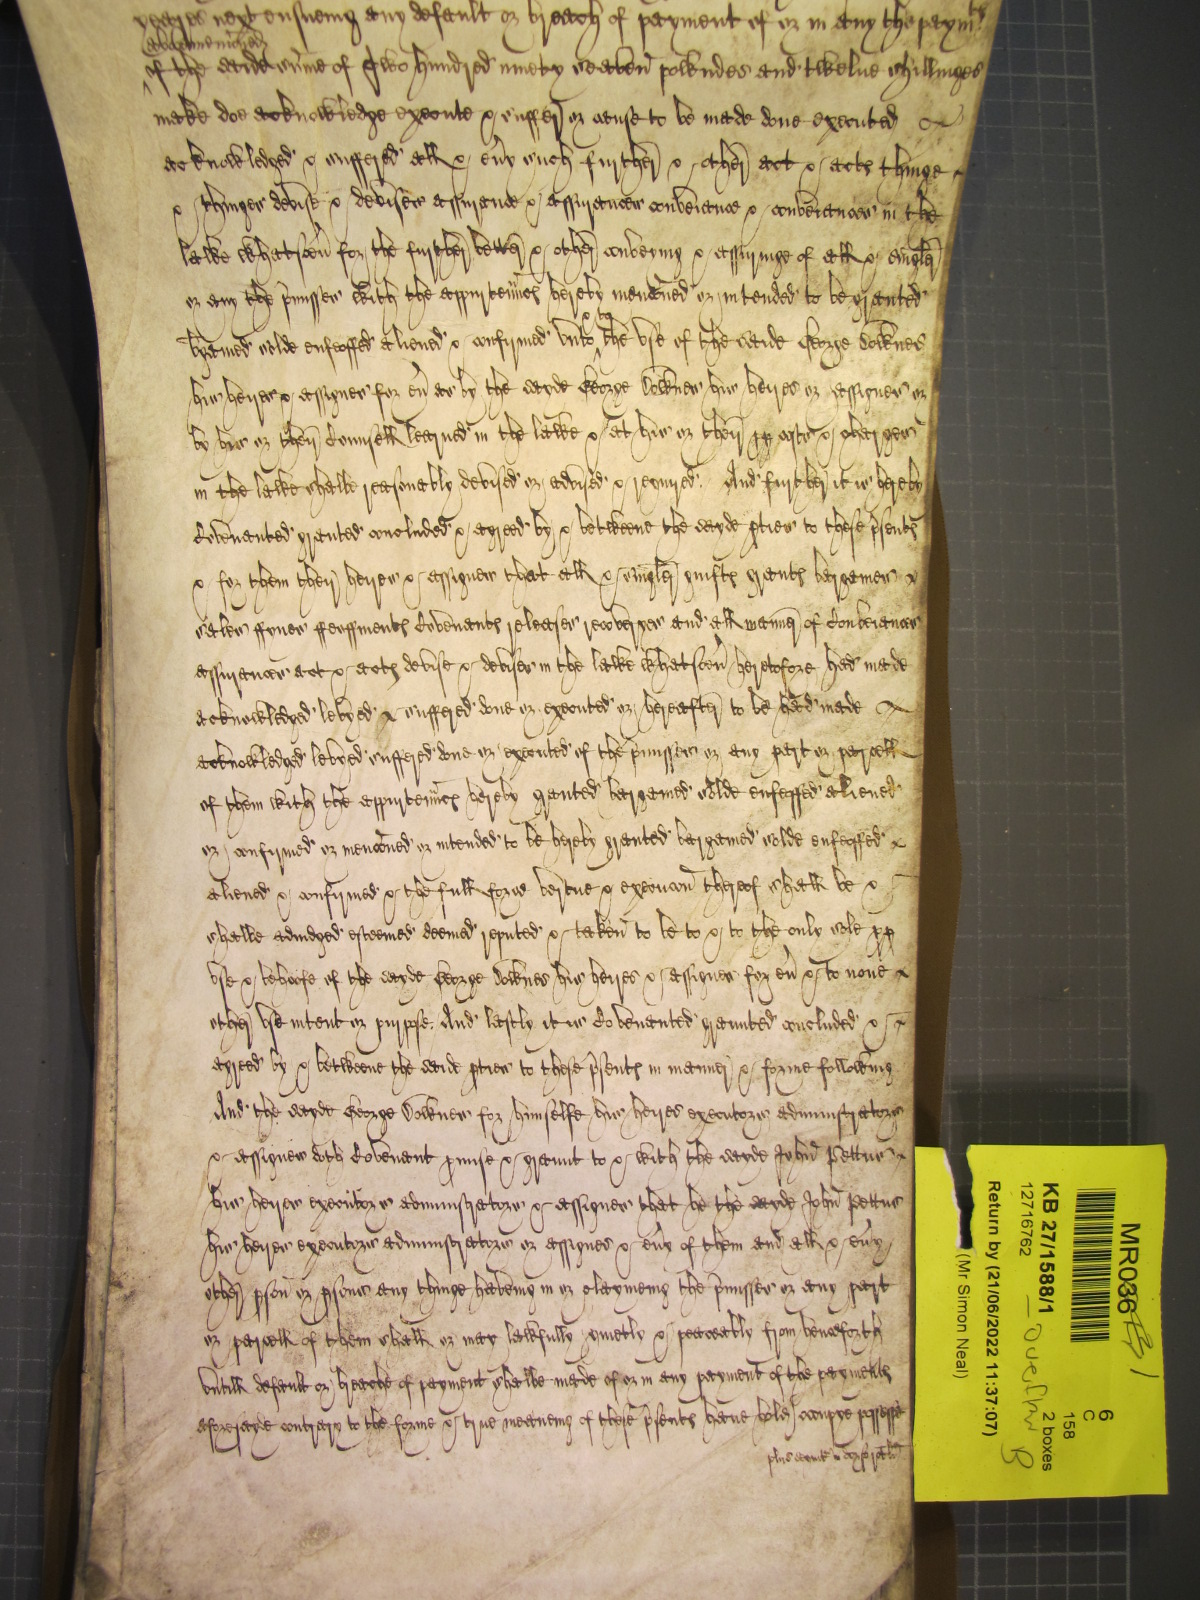 yeares next ensueing any default or breach of payment of or in any the paymts
abovemenconed
of the saide sume of two hundred ninety seaven powndes and twelve shillinges
make doe acknowledge execute & suffer or cause to be made done executed
acknowledged & suffered all & evy such further & other act & acts thinge
& thinges devise & devises assurance & assurances conveiance & conveiances in the
lawe whatsoev for the further better & other conveying & assuringe of all & singler
or any the pmisses with the appurtennces hereby menconed or intended to be granted
bargained solde enfeoffed aliened & confirmed unto & to the use of the saide George Sowknes
his heires & assignes for ev as by the sayde George Sowknes his heires or assignes or
by his or their Counsell learned in the lawe & at his or their pp costs & charges
in the lawe shalbe reasonably devised or advised & required. And further it is hereby
Covenanted granted concluded & agreed by & betweene the sayde pties to these psents
& for them their heires & assignes that all & singler guifts grants bargaines &
sales ffynes ffeoffments Covenants releases recoveryes and all manner of Conveiances
assurances act & acts devise & devises in the lawe whatsoev heretofore had made
acknowledged levyed & suffered done or executed or hereafter to be had made
acknowledged levyed suffered done or executed of the pmisses or any part or parcell
of them with the appurtennces hereby granted bargained solde enfeoffed aliened
or confirmed or menconed or intended to be hereby granted bargained solde enfeoffed &
aliened & confirmed & the full force vertue & execucon thereof shall be &
shalbe adiudged esteemed deemed reputed & taken to be to & to the only sole pp
use & behoofe of the sayde George Sowknes his heires & assignes for ev & to none
other use intent or purpose. And lastly it is Covenanted graunted concluded &
agreed by & betweene the saide pties to these psents in manner & forme following
And the sayde George Sowknes for himselfe his heires executors administrators
& assignes doth Covenant pmise & graunt to & with the sayde John Pettus
his heires executors administrators & assignes that he the sayde John Pettus
his heires executors administrators or assignes & evy of them and all & evy
other pson or psons any thinge haveing in or claymeing the pmisses or any part
or parcell of them shall or may lawfully quietly & peaceably from henceforth
untill default or breache of payment shalbe made of or in any payment of the payments
aforesayde contrary to the forme & true meaneing of these psents have hold occupye possesse
MR036
6
C
158
2 boxes
KB 27/1588/1
12716762
Return by (21/06/2022 11:37:07)
(Mr Simon Neal)